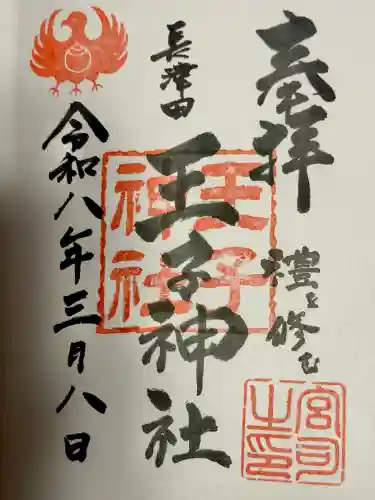 奉拝
禮を修む
長津田
王子神社
令和八年三月八日
王子
神社
宮司
之印